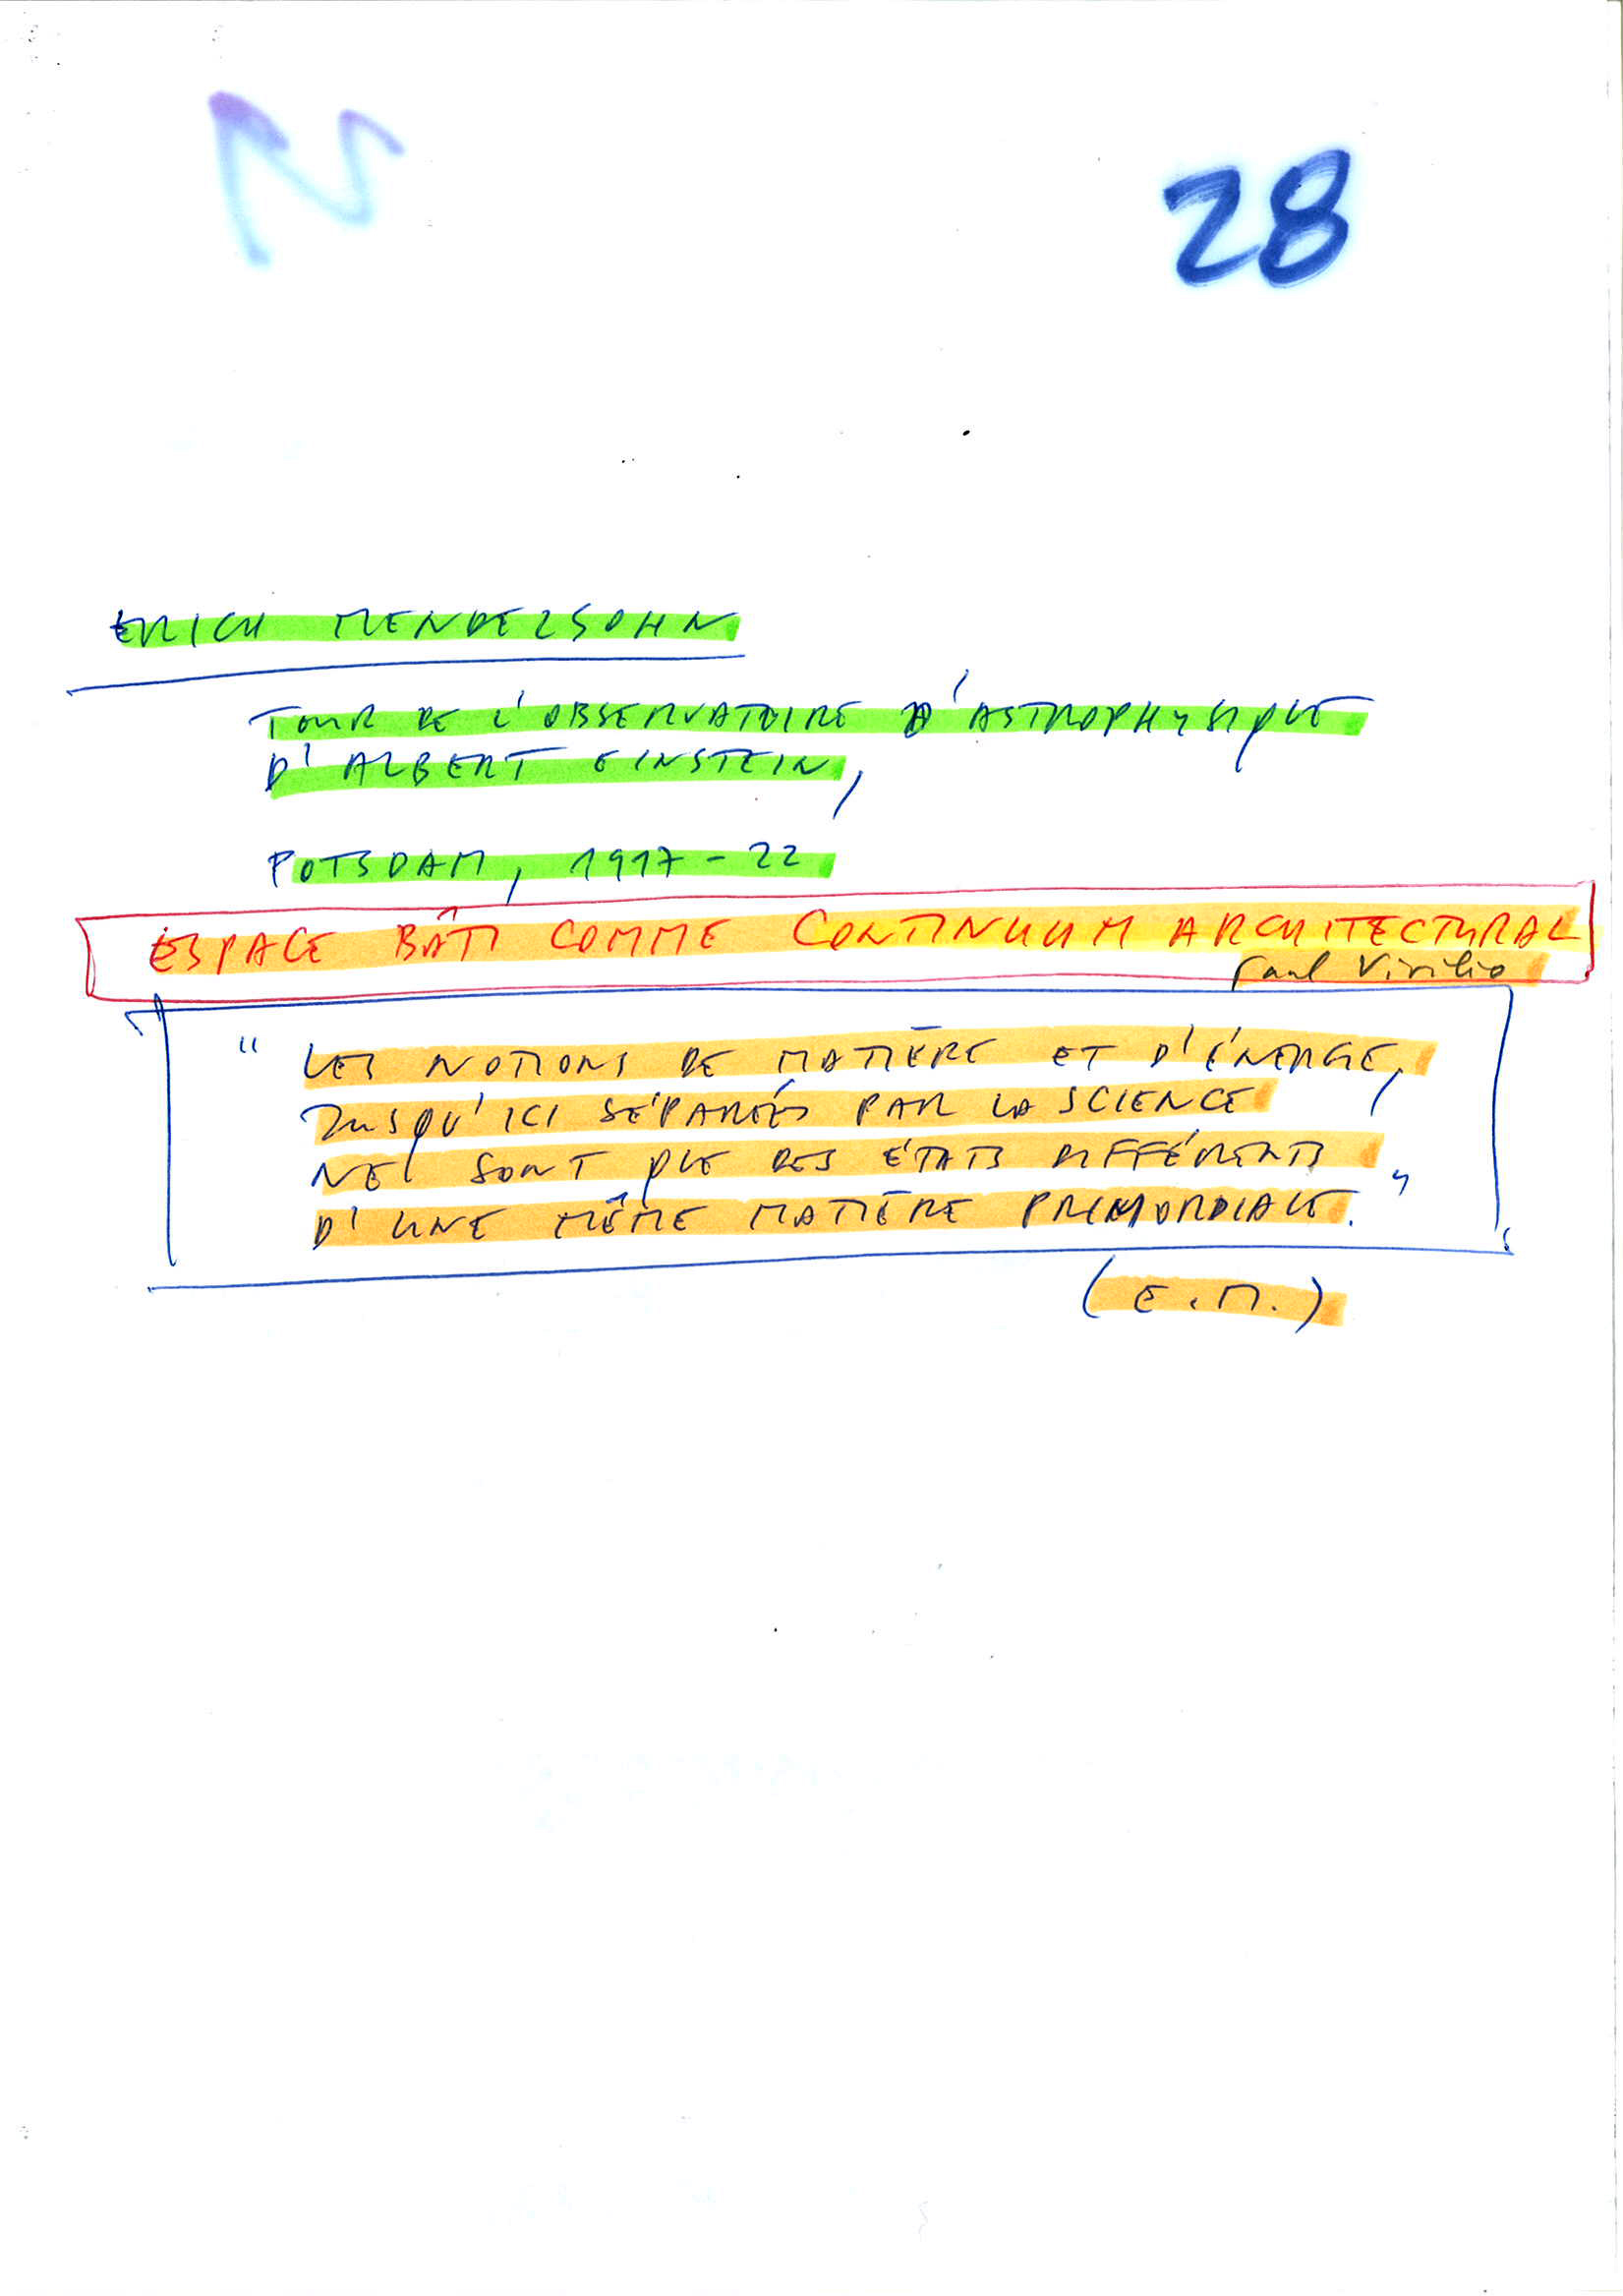 28
ERICH MENDELSOHN
TOUR DE L'OBSERVATOIRE D'ASTROPHYSIQUE
D'ALBERT EINSTEIN,
POTSDAM, 1917-22
ESPACE BÂTI COMME CONTINUUM ARCHITECTURAL
Paul Virilio
" LES NOTIONS DE MATIÈRE ET D'ÉNERGIE,
JUSQU'ICI SÉPARÉES PAR LA SCIENCE
NE SONT QUE DES ÉTATS DIFFÉRENTS
D'UNE MÊME MATIÈRE PRIMORDIALE."
(E.M.)